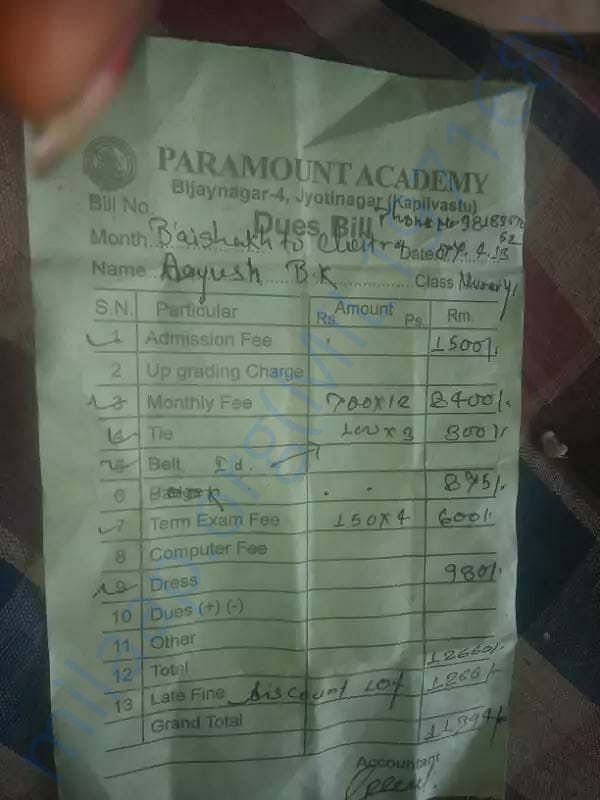 PARAMOUNT ACADEMY
Bijaynagar-4, Jyotinagar (Kapilvastu)
Bill No. Dues Bill Phone No
Month Baishakh to Chaitra Date
Name Aayush B.K Class Nursery
S.N. Particular Amount Rs. Ps. Rm.
1 Admission Fee 1500/.
2 Up grading Charge
3 Monthly Fee 700x12 8400/.
Tie 100 x 3 300/.
5 Belt, Id.
6 895/.
7 Term Exam Fee 150x4 600/.
8 Computer Fee
Dress 980/.
10 Dues (+) (-)
11 Other
12 Total 12660/.
13 Late Fine Discount 1266/-
Grand Total 11394/-
Accountant